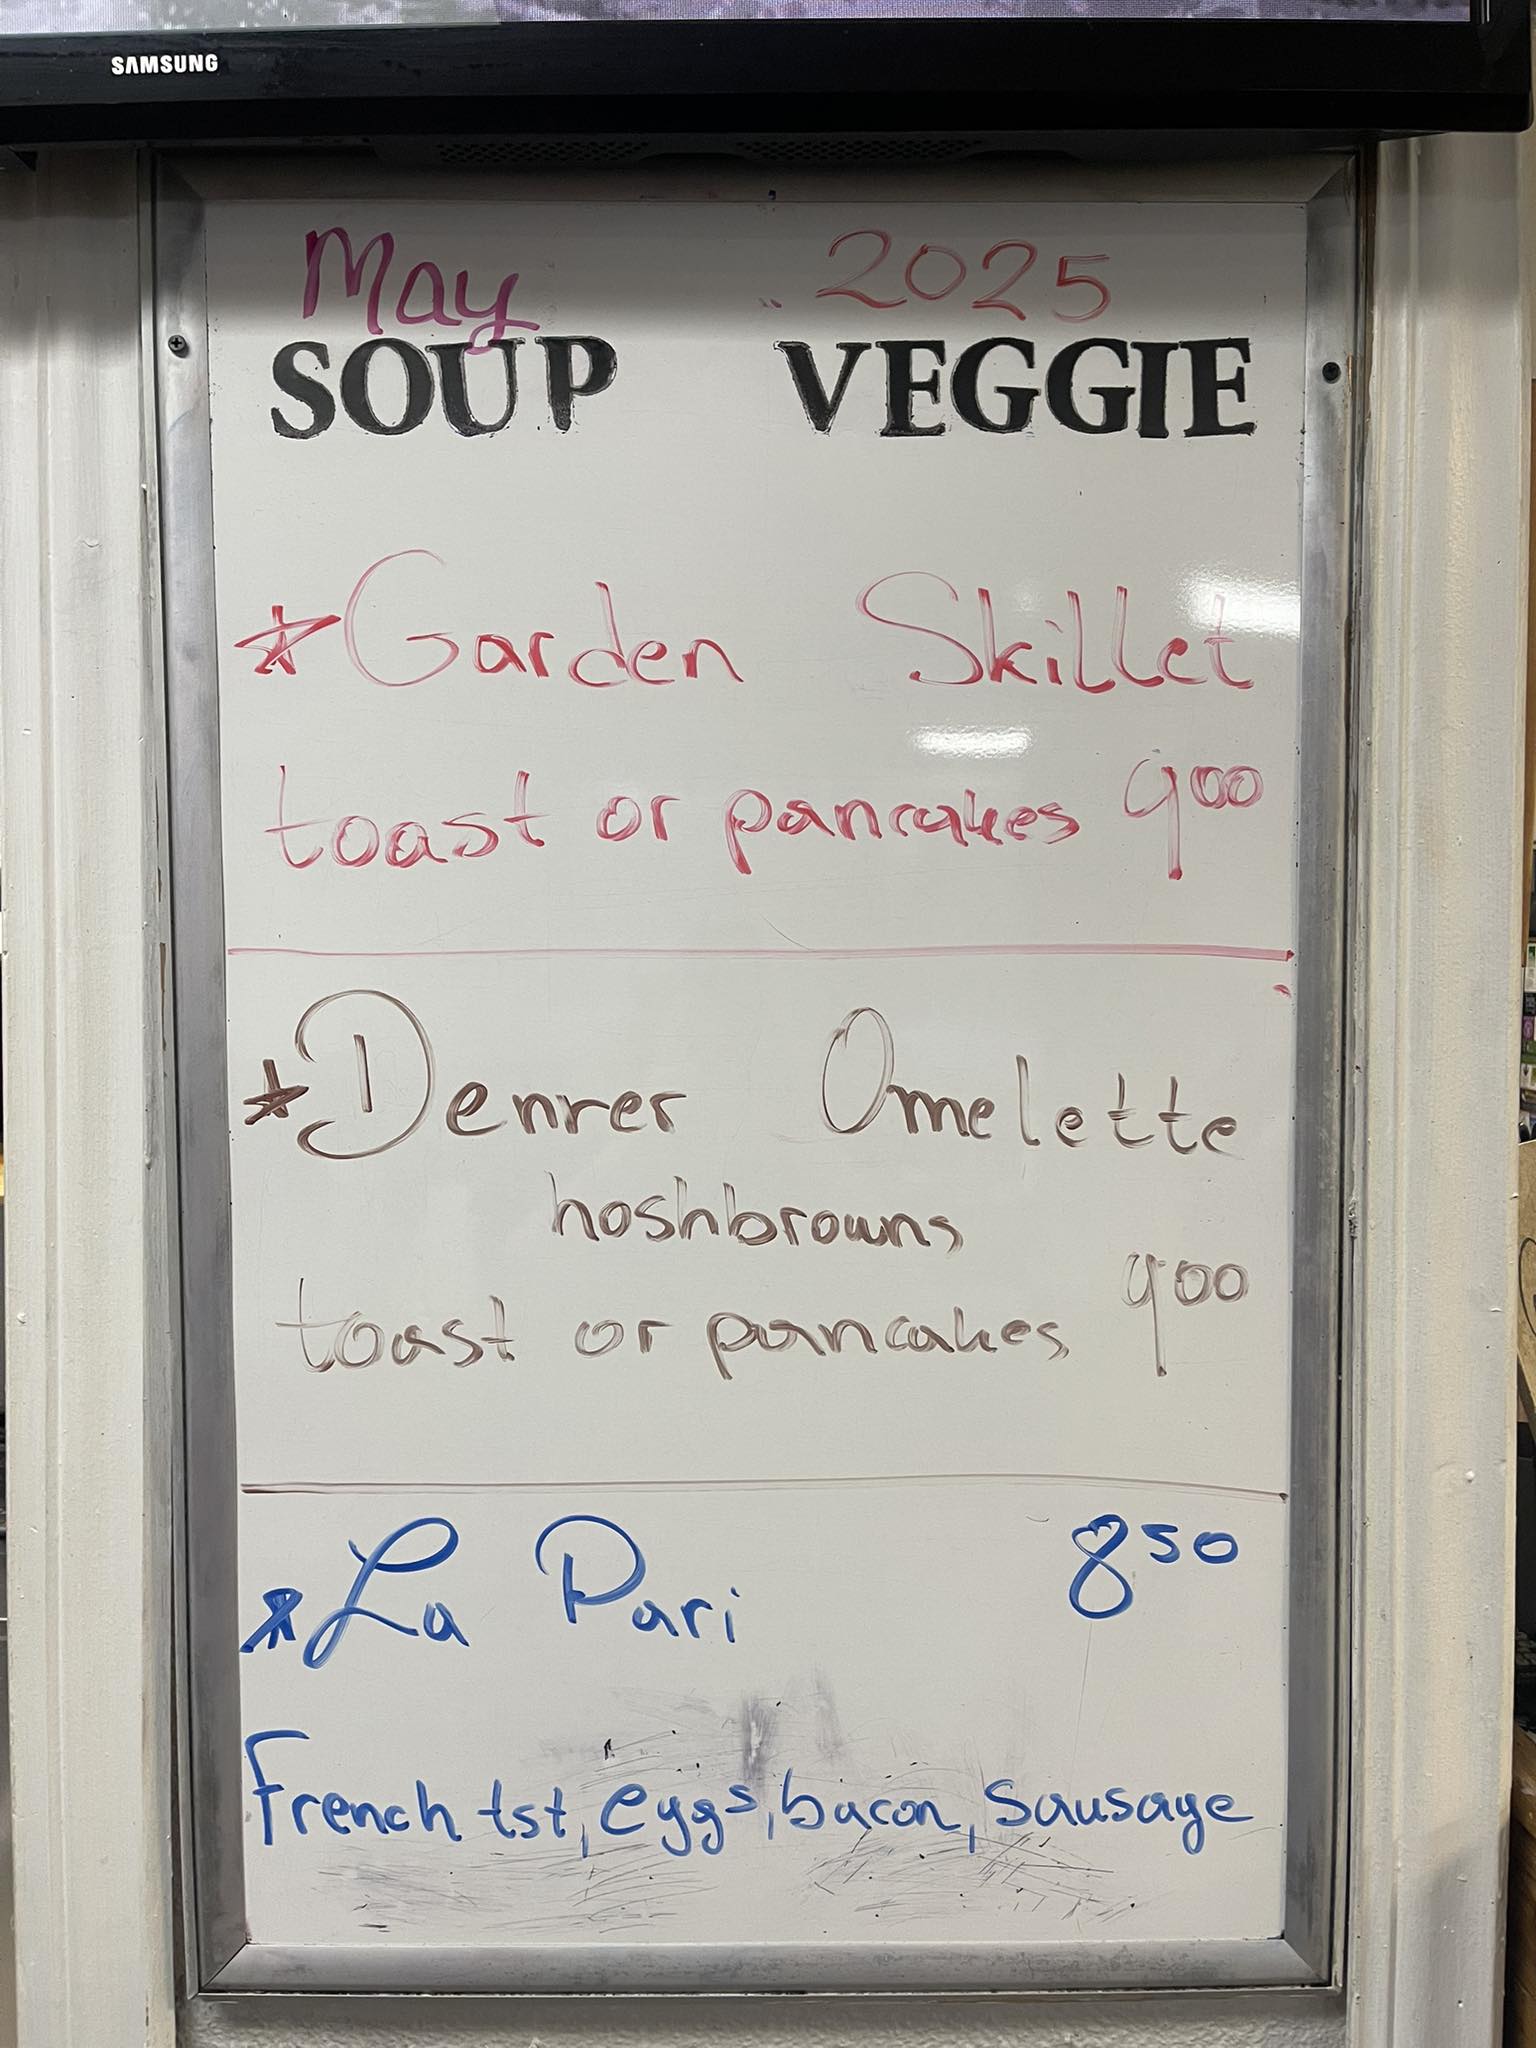 SAMSUNG
May 2025
SOUP VEGGIE
*Garden Skillet
toast or pancakes 9⁰⁰
*Denver Omelette
hashbrowns
toast or pancakes 9⁰⁰
*La Pari 8⁵⁰
French tst, eggs, bacon, sausage